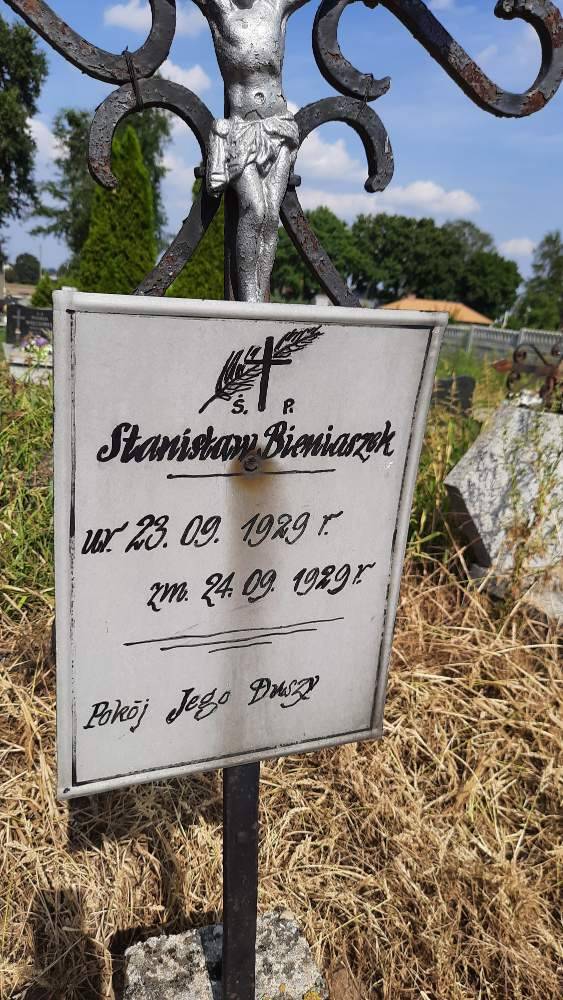 Ś. P.
Stanisław Bieniaszek
ur. 23. 09. 1929 r.
zm. 24. 09. 1929 r.
Pokój Jego Duszy